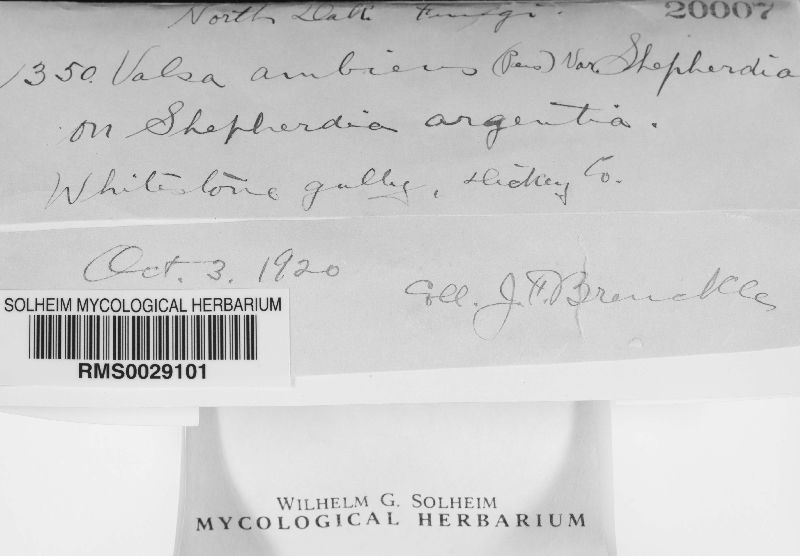 North Dak. Fungi. 20007
1350. Valsa ambiens (Pers) Var. Shepherdia
on Shepherdia argentia.
Whitestone gulley, Dickey Co.
Oct. 3. 1920
Coll. J. F. Brenckle
SOLHEIM MYCOLOGICAL HERBARIUM
RMS0029101
WILHELM G. SOLHEIM
MYCOLOGICAL HERBARIUM